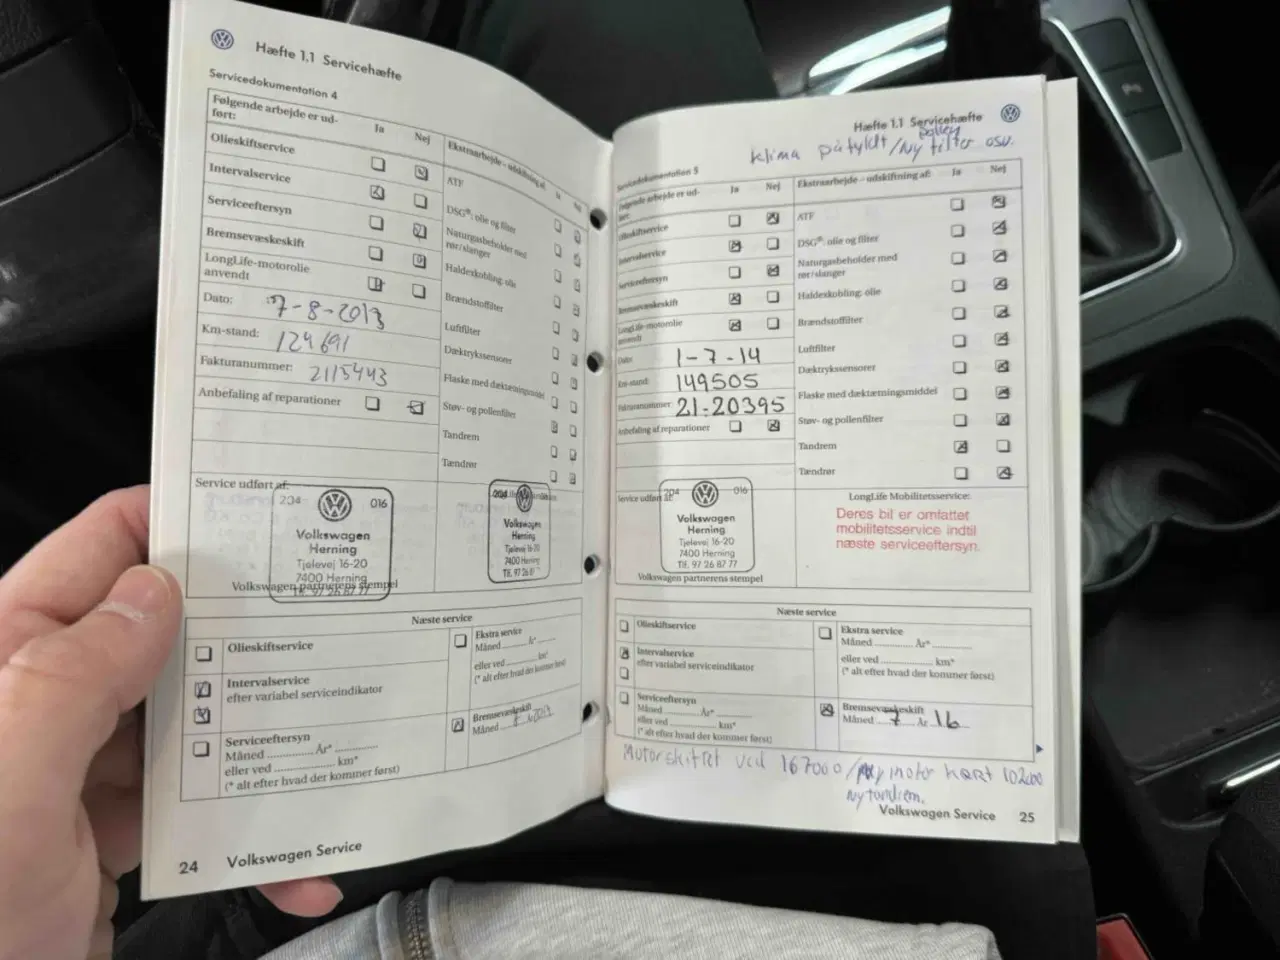 Hæfte 1.1 Servicehæfte
Servicedokumentation 4
Følgende arbejde er ud-
ført:
Ja
Nej
Olieskiftservice
Intervalservice
Serviceeftersyn
Bremsevæskeskift
LongLife-motorolie
anvendt
Dato: 7-8-2013
Km-stand: 124691
Fakturanummer: 2115443
Anbefaling af reparationer
Ekstraarbejde – udskiftning af:
Ja
Nej
ATF
DSG®: olie og filter
Naturgasbeholder med
rør/slanger
Haldexkobling: olie
Brændstoffilter
Luftfilter
Dæktrykssensorer
Flaske med dæktætningsmiddel
Støv- og pollenfilter
Tandrem
Tændrør
Service udført af:
204 016
Volkswagen
Herning
Tjelevej 16-20
7400 Herning
Tlf. 97 26 87 77
Volkswagen partnerens stempel
Volkswagen
Herning
Tjelevej 16-20
7400 Herning
Næste service
Olieskiftservice
Intervalservice
efter variabel serviceindikator
Serviceeftersyn
Måned ............. År* .............
eller ved .................... km*
(* alt efter hvad der kommer først)
Ekstra service
Måned .......... År* ..........
eller ved ............... km*
(* alt efter hvad der kommer først)
Bremsevæskeskift
Måned
24 Volkswagen Service
Hæfte 1.1 Servicehæfte
klima påfyldt / Ny filter osv.
Servicedokumentation 5
Følgende arbejde er ud-
ført:
Ja
Nej
Olieskiftservice
Intervalservice
Serviceeftersyn
Bremsevæskeskift
LongLife-motorolie
anvendt
Dato: 1-7-14
Km-stand: 149505
Fakturanummer: 21-20395
Anbefaling af reparationer
Ekstraarbejde – udskiftning af:
Ja
Nej
ATF
DSG®: olie og filter
Naturgasbeholder med
rør/slanger
Haldexkobling: olie
Brændstoffilter
Luftfilter
Dæktrykssensorer
Flaske med dæktætningsmiddel
Støv- og pollenfilter
Tandrem
Tændrør
Service udført af:
204 016
Volkswagen
Herning
Tjelevej 16-20
7400 Herning
Tlf. 97 26 87 77
Volkswagen partnerens stempel
LongLife Mobilitetsservice:
Deres bil er omfattet
mobilitetsservice indtil
næste serviceeftersyn.
Næste service
Olieskiftservice
Intervalservice
efter variabel serviceindikator
Serviceeftersyn
Måned ............. År* .............
eller ved .................... km*
(* alt efter hvad der kommer først)
Ekstra service
Måned ............. År* .............
eller ved .................... km*
(* alt efter hvad der kommer først)
Bremsevæskeskift
Måned 7 År 16
Motor skiftet ved 167000 / Ny motor kørt 102000
Ny tandrem.
Volkswagen Service 25